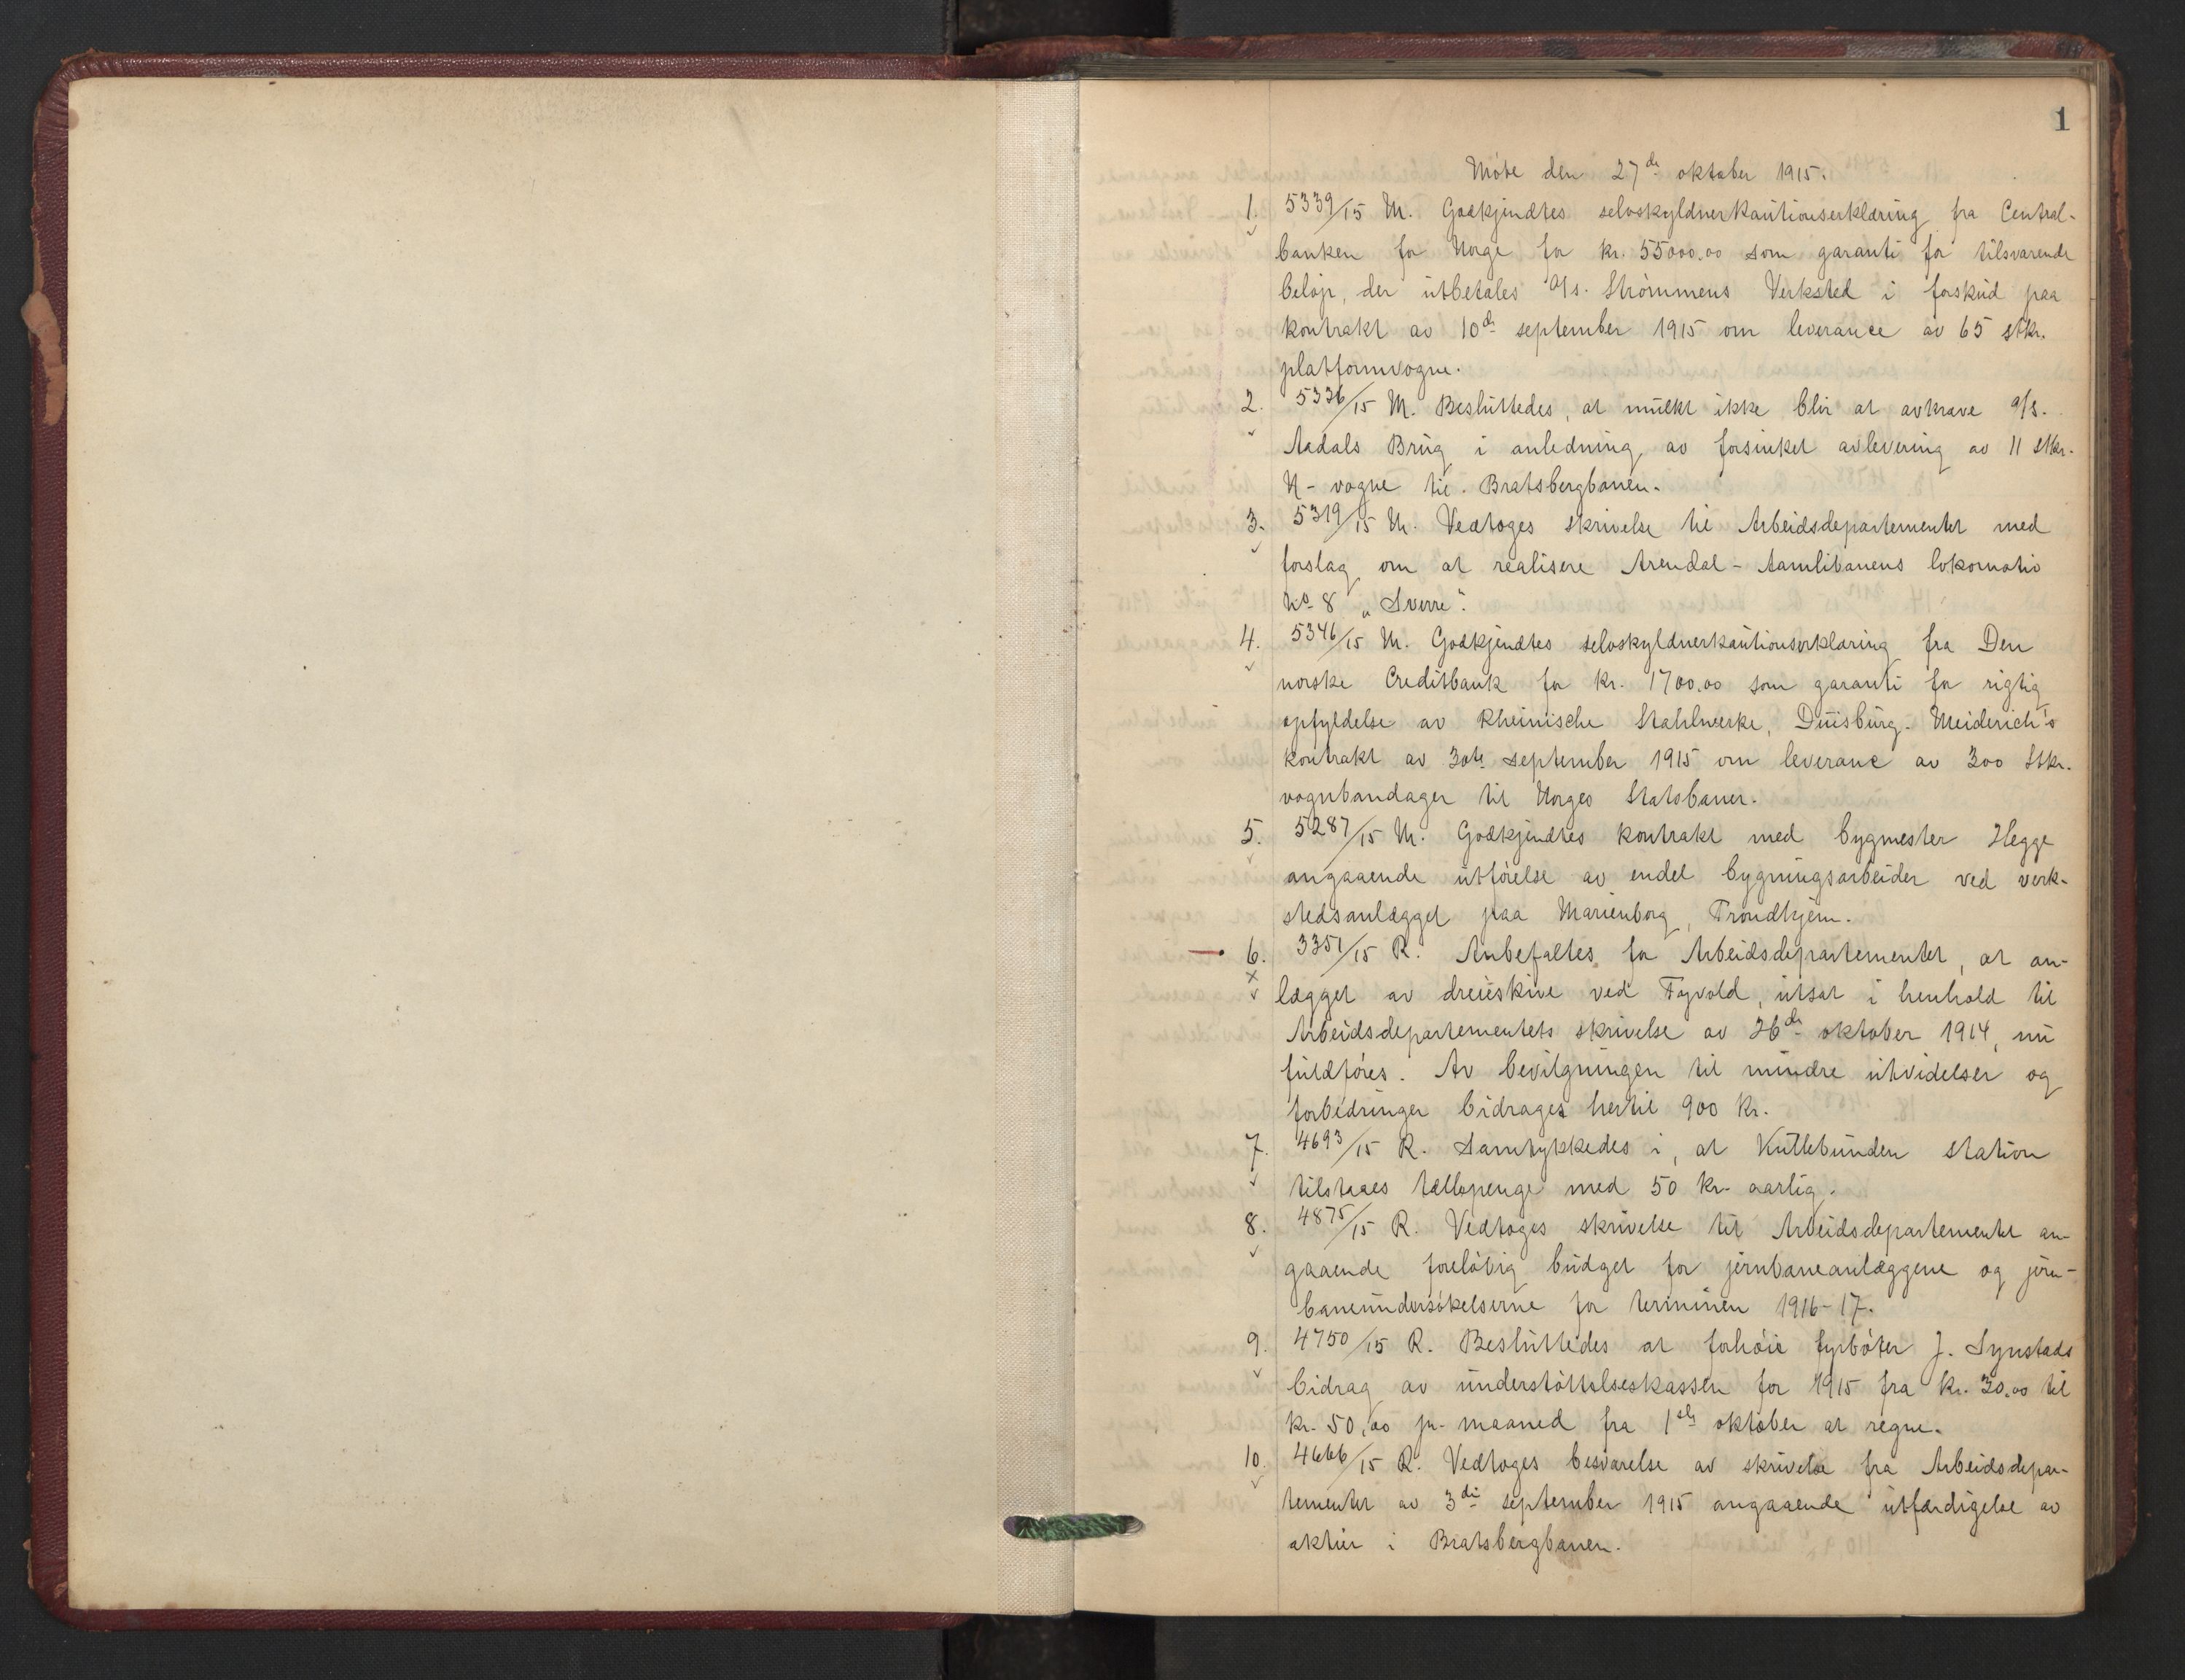 1
Møte den 27de oktober 1915.
1. 5339/15 M. Godkjendtes selvskyldnerkautionserklæring fra Central-
banken for Norge for kr. 55000.00 som garanti for tilsvarende
beløp, der utbetales A/s. Strømmens Verksted i forskud paa
kontrakt av 10de september 1915 om leverance av 65 stkr.
platformvogne.
2. 5336/15 M. Besluttedes, at mulkt ikke blir at avkræve A/S.
Aadals Brug i anledning av forsinket avlevering av 11 stkr.
N-vogne til Bratsbergbanen.
3. 5319/15 M. Vedtoges skrivelse til Arbeidsdepartementet med
forslag om at realisere Arendal-Aamlibanens lokomotiv
No 8 „Sverre".
4. 5346/15 M. Godkjendtes selvskyldnerkautionserklæring fra Den
norske Creditbank for kr. 1700.00 som garanti for rigtig
opfyldelse av Rheinische Stahlwerke, Duisburg-Meiderich's
kontrakt av 30te september 1915 om leverance av 300 stkr.
vognbandager til Norges Statsbaner.
5. 5287/15 M. Godkjendtes kontrakt med bygmester Hegge
angaaende utførelse av endel bygningsarbeider ved verk-
stedsanlægget paa Marienborg, Trondhjem.
6. 3351/15 R. Anbefaltes for Arbeidsdepartementet, at an-
x lægget av dreieskive ved Tyvold, utsat i henhold til
Arbeidsdepartementets skrivelse av 26de oktober 1914, nu
fuldføres. Av bevilgningen til mindre utvidelser og
forbedringer bidrages hertil 900 kr.
7. 4693/15 R. Samtykkedes i, at Kuttebunden station
tilstaaes tællepenge med 50 kr. aarlig.
8. 4875/15 R. Vedtoges skrivelse til Arbeidsdepartementet an-
gaaende foreløbig budget for jernbaneanlæggene og jern-
baneundersøkelserne for terminen 1916-17.
9. 4750/15 R. Besluttedes at forhøie fyrbøter J. Synstads
bidrag av understøttelseskassen for 1915 fra kr. 30.00 til
kr. 50.00 pr. maaned fra 1ste oktober at regne.
10. 4666/15 R. Vedtoges besvarelse av skrivelse fra Arbeidsdepar-
tementet av 3die september 1915 angaaende utfærdigelse av
aktier i Bratsbergbanen.